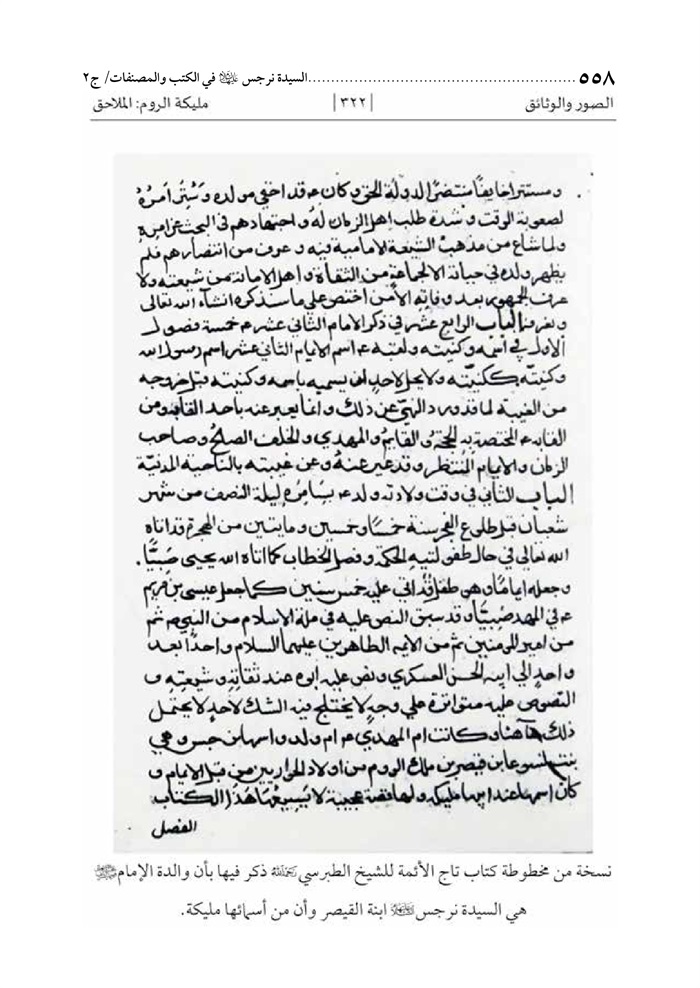 ٥٥٨ ............................................................ السيدة نرجس في الكتب والمصنفات/ ج٢
الصور والوثائق |٣٢٢| مليكة الروم: الملاحق
ومستتراخايفا منتضرا لدولة الحق وكان ع قد اخفي مولده وستر امره
لصعوبة الوقت وشدة طلب اهل الزمان له واجتهادهم في البحث عن امره
ولما شاع من مذهب الشيعة الامامية فيه وعرف من انتضارهم فلم
يظهر ولده في حياته الا لجماعة من الثقاة واهل الامانة من شيعته ولا
عرف الجمهور بعد وفاته الا من اختص علي ما سنذكره انشآء الله تعالى
الباب الرابع عشر في ذكر الامام الثاني عشر ع خمسة فصول
الاول في اسمه وكنيته ولقبه ع اسم الامام الثاني عشر اسم رسول الله
وكنيته ككنيته ولا يحل لاحد ان يسميه باسمه وكنيته قبل خروجه
من الغيبة لما قد ورد النهي عن ذلك وانما يعبر عنه باحد القابه ومن
القابه ع المختصة به الحجة والقايم والمهدي والخلف الصالح وصاحب
الزمان والامام المنتظر وقد عبر عنه وعن غيبته بالناحية
الباب الثاني في وقت ولادته ولد ع بسامره ليلة النصف من شهر
شعبان قبل طلوع الفجر سنة خمسا وخمسين ومايتين من الهجرة قد اتاه
الله تعالي في حال طفوليته الحكمة وفصل الخطاب كما اتاه الله يحيى صبيا.
وجعله اماما وهو طفل قد اتي عليه خمس سنين كما جعل عيسى بن مريم
ع في المهد صبيا وقد سبق النص عليه في ملة الاسلام من النبي ص ثم
من امير المومنين ثم من الايمه الطاهرين عليهما السلام واحدا بعد
واحد الي ابيه الحسن العسكري ونص عليه ابوه عند ثقاته وشيعته و
النصوص عليه متواترة علي وجه لا يختلج فيه الشك لاحد لا يحتمل
ذلك هآهنا وكانت ام المهدي ع ام ولد واسمها نرجس وهي
بنت يسوعا بن قيصر بن ملك الروم من اولاد الحواريين من قبل الامام و
كان اسمها عند ابيها مليكه ولها قصة عجيبة لا يسيعها هذا الكتاب
الفصل
نسخة من مخطوطة كتاب تاج الأئمة للشيخ الطبرسي ذكر فيها بأن والدة الإمام
هي السيدة نرجس ابنة القيصر وأن من أسمائها مليكة.